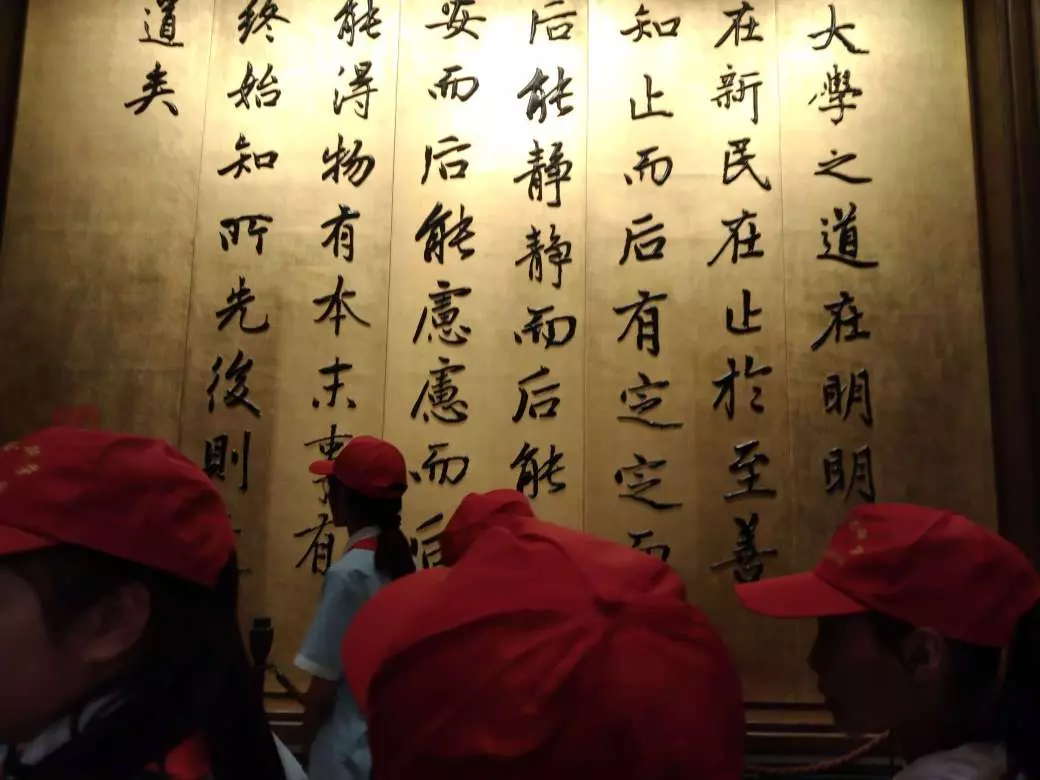 大學之道在明明
在新民在止於至善
知止而后有定定而
后能静静而后能
安而后能慮慮而后
能得物有本末事有
終始知所先後則
道矣